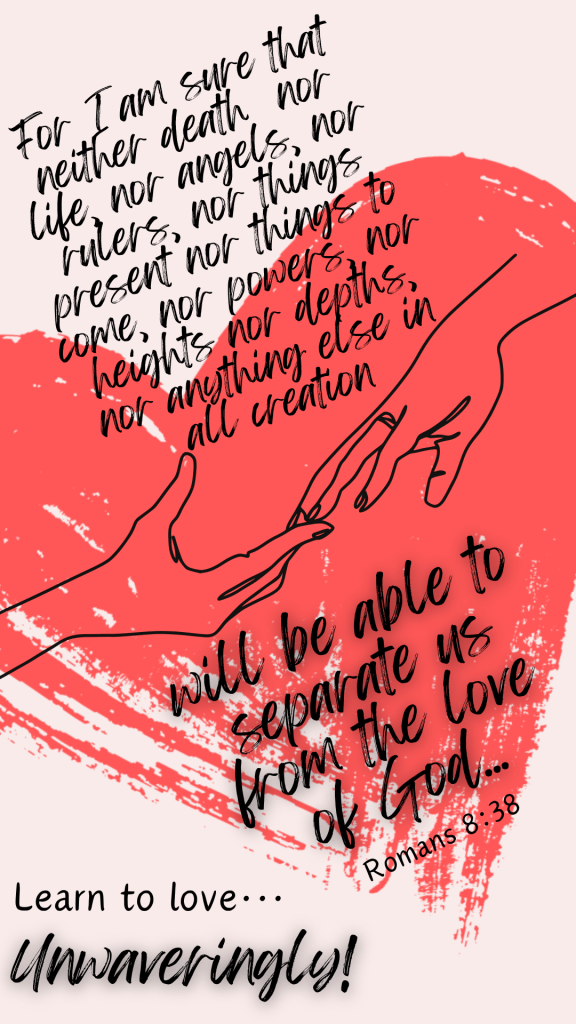 For I am sure that
neither death nor
life, nor angels, nor
rulers, nor things
present nor things to
come, nor powers, nor
heights nor depths,
nor anything else in
all creation
will be able to
separate us
from the love
of God...
Romans 8:38
Learn to love...
Unwaveringly!